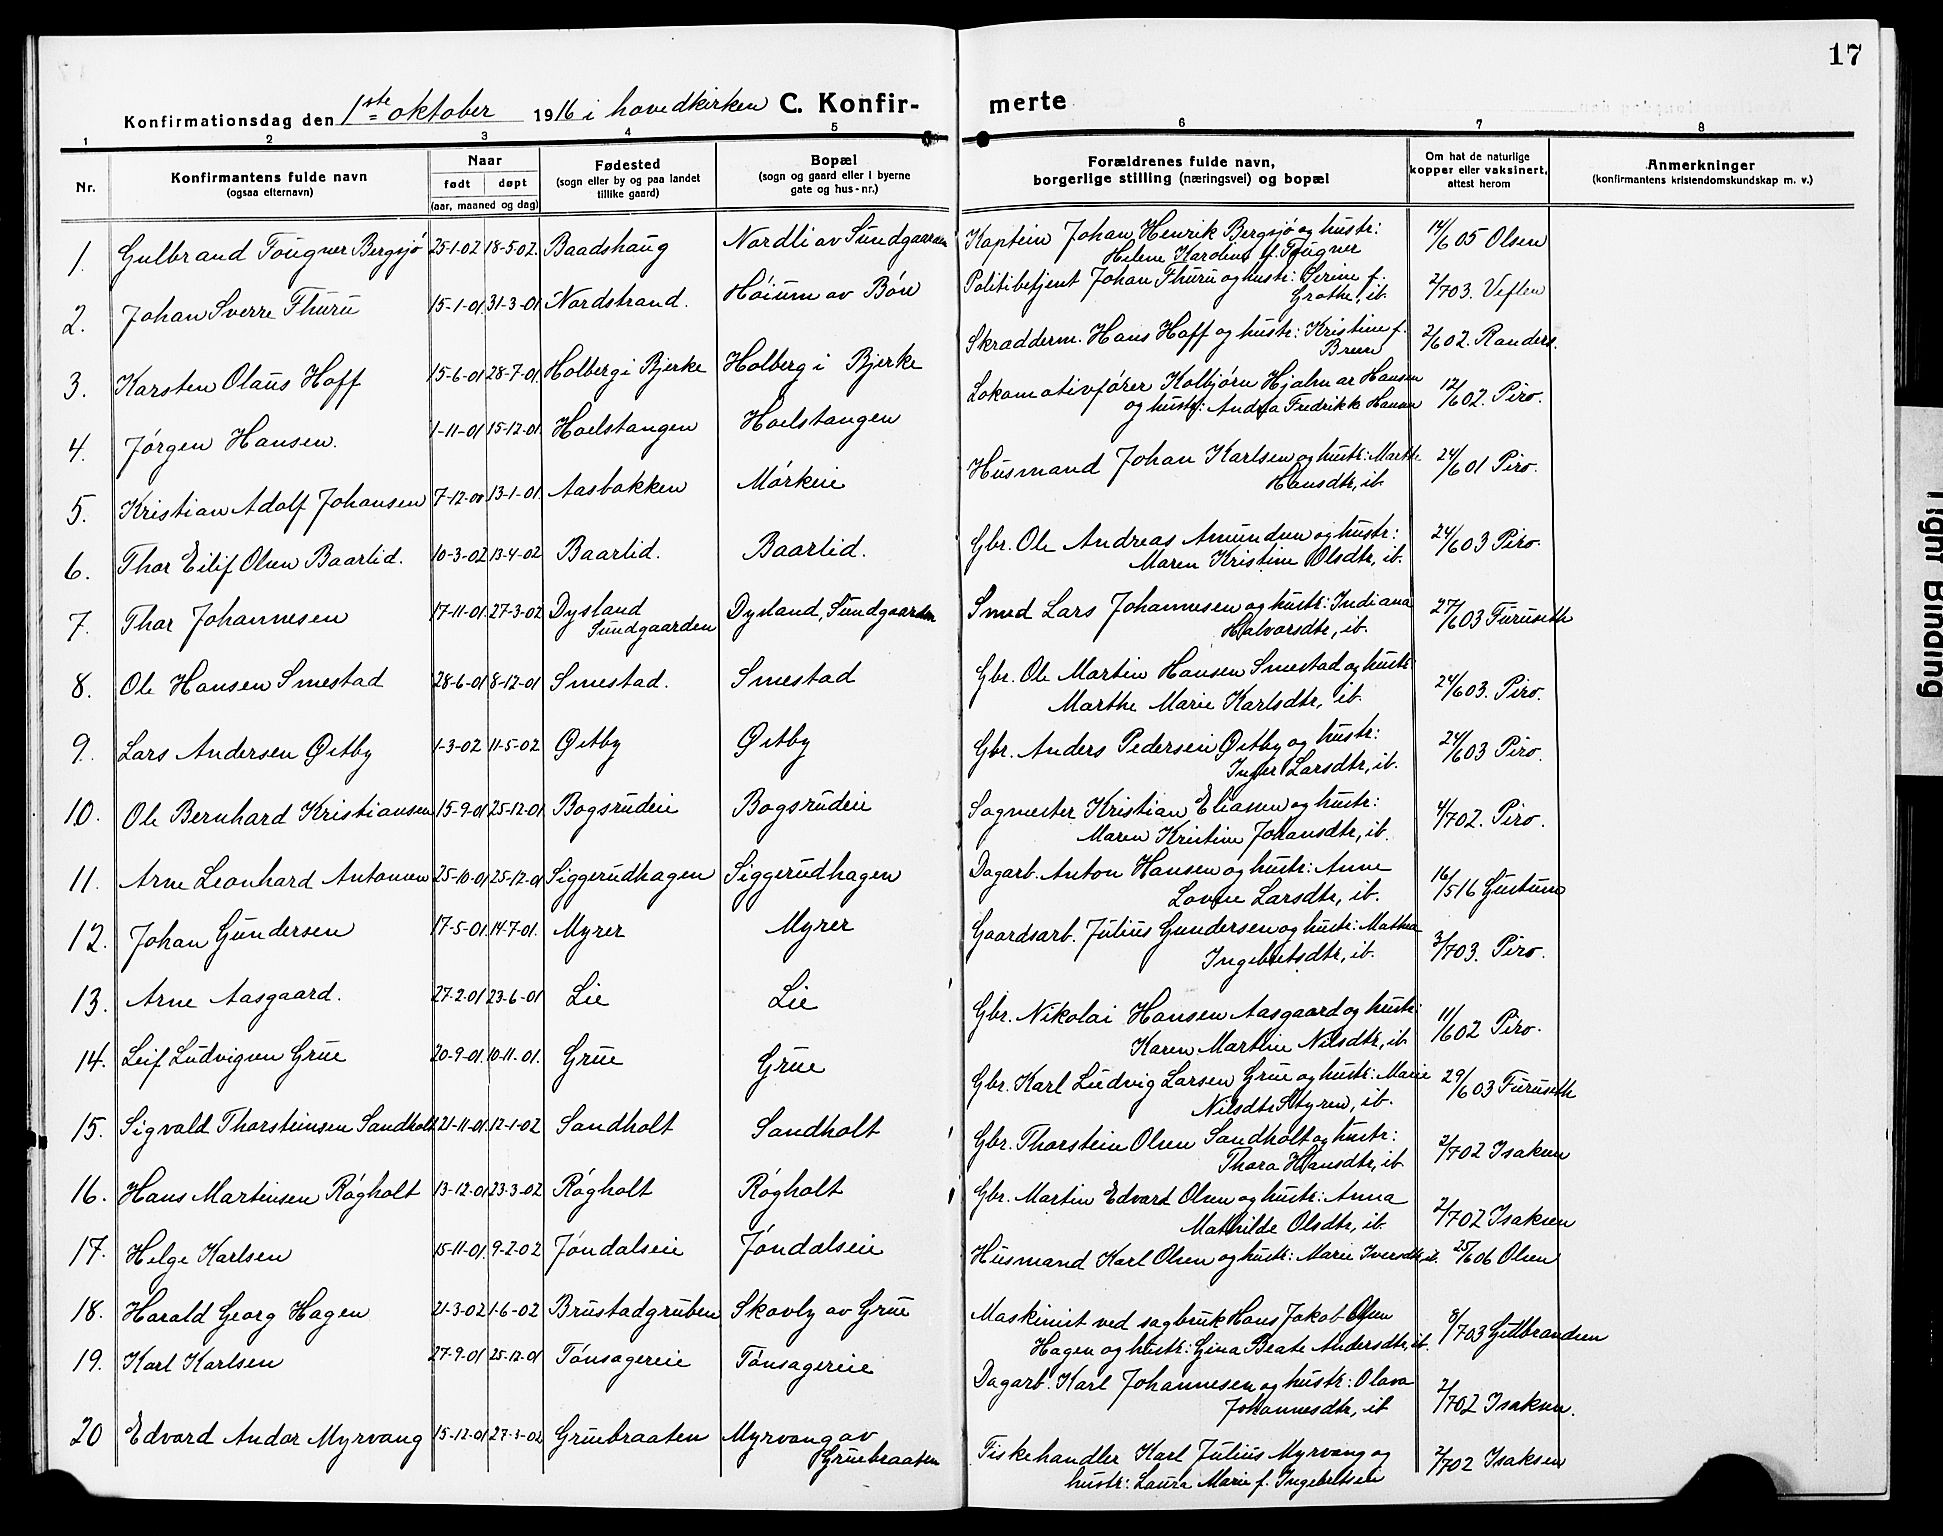 17
Konfirmationsdag den 1ste oktober 1916 i hovedkirken C. Konfirmerte
1 2 3 4 5 6 7 8
Nr.
Konfirmantens fulde navn
(ogsaa efternavn)
Naar
født døpt
(aar, maaned og dag)
Fødested
(sogn eller by og paa landet
tillike gaard)
Bopæl
(sogn og gaard eller i byerne
gate og hus-nr.)
Forældrenes fulde navn,
borgerlige stilling (næringsvei) og bopæl
Om hat de naturlige
kopper eller vaksinert,
attest herom
Anmerkninger
(konfirmantens kristendomskundskap m. v.)
1. Gulbrand Tougner Bergsjó 25-1-02 18-5-02. Baadshaug Nordli av Sundgaarden Kaptein Johan Henrik Bergsjó og hustr: 14/6 05 Olsen
Helene Karoline f. Tougner
2. Johan Sverre Thuru 15-1-01 31-3-01 Nordstrand. Hóium av Bón Politibetjent Johan Thuru og hustr: Serine f. 2/7 03. Veflen
Grothe, ib.
3. Karsten Olaus Hoff 15-6-01 28-7-01. Holberg i Bjerke Holberg i Bjerke Skrædderm. Hans Hoff og hustr: Kristine f. 2/6 02. Randers.
Breen
4. Jórgen Hansen. 1-11-01 15-12-01. Hoelstangen Hoelstangen Lokomotivfórer Kolbjórn Hjalmar Hansen 12/6 02. Piro.
og hustr: Andrea Fredrikke Hansen
5. Kristian Adolf Johansen 7-12-00 13-1-01. Aasbakken Mórkeie Husmand Johan Karlsen og hustr: Marthe 24/6 01 Piro.
Hansdtr, ib.
6. Thor Eilif Olsen Baarlid. 10-3-02 13-4-02 Baarlid. Baarlid. Gbr. Ole Andreas Amundsen og hustr: 24/6 03 Piro.
Maren Kristine Olsdtr, ib.
7. Thor Johannesen 17-11-01. 27-3-02 Dysland Dysland, Sundgaarden Smed Lars Johannesen og hustr: Indiana 27/6 03 Furuseth
Sundgaarden Halvorsdtr, ib.
8. Ole Hansen Smestad 28-6-01 8-12-01 Smestad. Smestad Gbr. Ole Martin Hansen Smestad og hustr: 24/6 03. Piro.
Marthe Marie Karlsdtr, ib.
9. Lars Andersen Østby 1-3-02 11-5-02 Østby Østby Gbr. Anders Pedersen Østby og hustr: 24/6 03 Piro.
Inger Larsdtr, ib.
10. Ole Bernhard Kristiansen 15-9-01 25-12-01. Bogsrudeie Bogsrudeie Sagmester Kristian Eliasen og hustr: 4/7 02. Piro.
Maren Kristine Johansdtr, ib.
11. Arne Leonhard Antonsen 25-10-01 25-12-01 Siggerudhagen Siggerudhagen Dagarb. Anton Hansen og hustr: Anne 16/5 16 Gustum
Lovise Larsdtr, ib.
12. Johan Gundersen 17-5-01. 14-7-01. Myrer Myrer Gaardsarb. Julius Gundersen og hustr: Mathea 3/7 03. Piro.
Ingebretsdtr, ib.
13. Arne Aasgaard. 27-2-01 23-6-01 Lie Lie Gbr. Nikolai Hansen Aasgaard og hustr: 11/6 02 Piro.
Karen Martine Nilsdtr, ib.
14. Leif Ludvigsen Grue 20-9-01. 10-11-01. Grue Grue Gbr. Karl Ludvig Larsen Grue og hustr: Marie 29/6 03 Furuseth
Nilsdtr Styren, ib.
15. Sigvald Thorsteinsen Sandholt 21-11-01. 12-1-02 Sandholt Sandholt Gbr. Thorstein Olsen Sandholt og hustr: 2/7 02 Isaksen
Thora Hansdtr, ib.
16. Hans Martinsen Rógholt 13-12-01. 23-3-02 Rógholt Rógholt Gbr. Martin Edvart Olsen og hustr: Anna 2/7 02 Isaksen
Mathilde Olsdtr, ib.
17. Helge Karlsen 15-11-01. 9-2-02 Jóndalseie Jóndalseie Husmand Karl Olsen og hustr: Marie Iversdtr, ib. 25/6 06 Olsen
18. Harald Georg Hagen 21-3-02 1-6-02 Brustadgruben Skovly av Grue Maskinist ved sagbruk Hans Jakob Olsen 8/7 03 Gulbrandsen
Hagen og hustr: Gina Beate Andersdtr, ib.
19. Karl Karlsen 27-9-01 25-12-01 Tónsagereie Tónsagereie Dagarb. Karl Johannesen og hustr: Olava 2/7 02 Isaksen.
Johannesdtr, ib
20 Edvard Andor Myrvang 15-12-01 27-3-02 Gruebraaten Myrvang av Fiskehandler Karl Julius Myrvang og 2/7 02 Isaksen
Gruebraaten hustr: Laura Marie f. Ingebretsen
Tight Binding